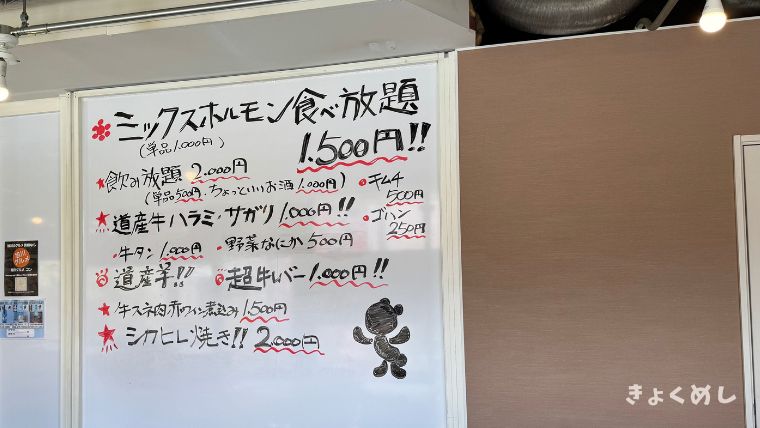 ミックスホルモン食べ放題
(単品1.000円)
1.500円!!
飲み放題 2.000円
(単品500円・ちょっといいお酒1.000円)
・キムチ
500円
道産牛ハラミ・サガリ 1.000円!!
・ゴハン
250円
・牛タン 1.000円 ・野菜なにか500円
道産羊!! 超牛レバー1.000円!!
牛スネ肉赤ワイン煮込み1.500円
シカヒレ焼き!! 2.000円
きょくめし